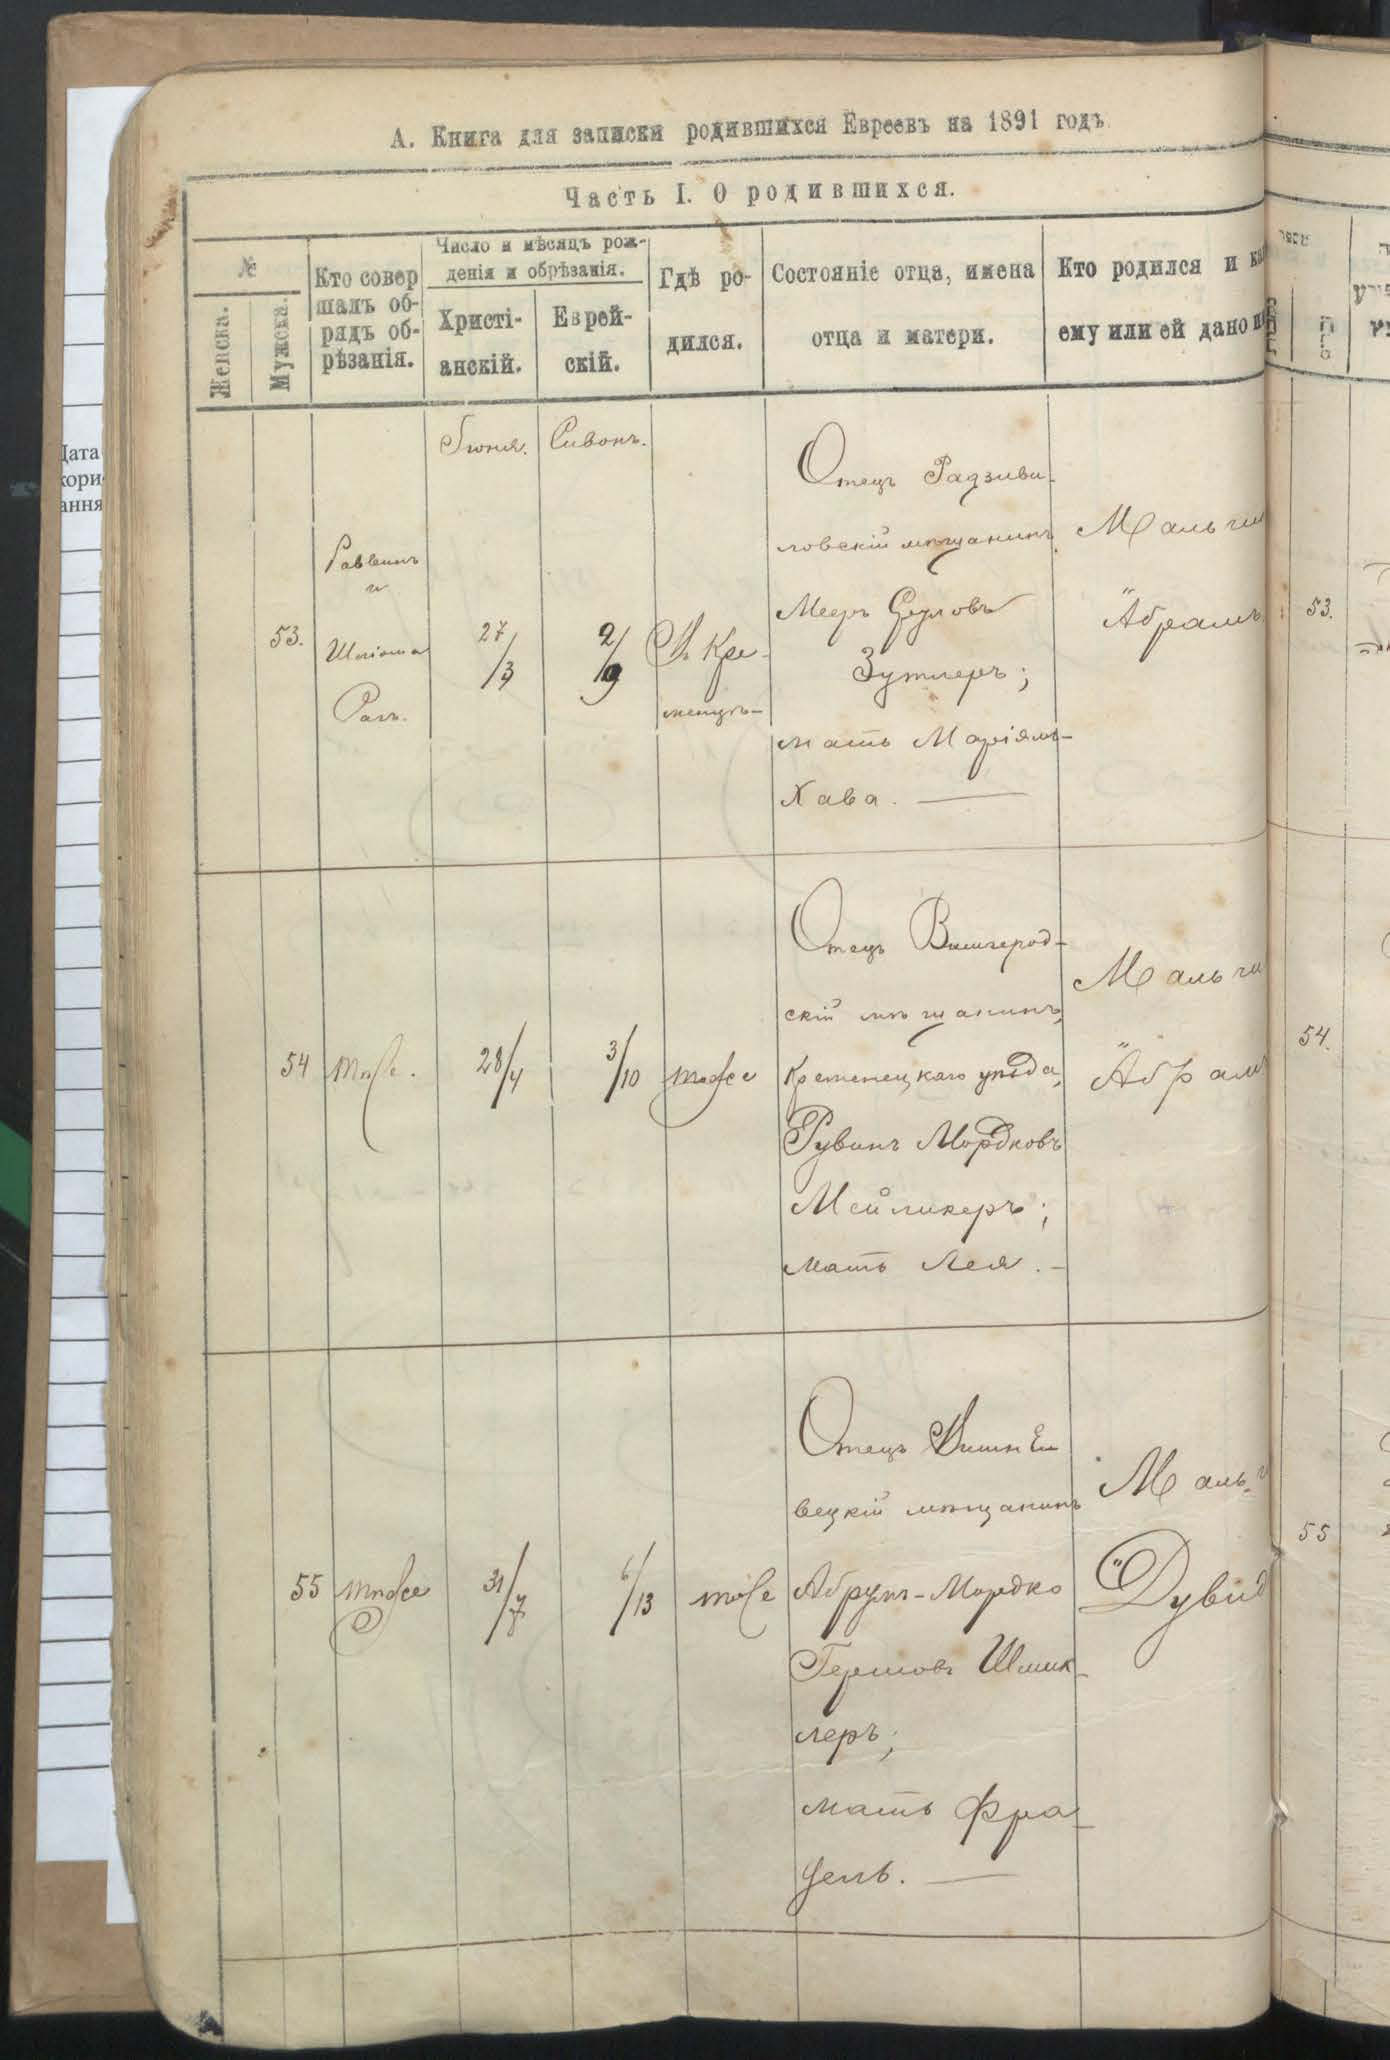 А. Книга для записки родившихся Евреевъ на 1891 годъ
Часть I. О родившихся.
№
Женска.
Мужска.
Кто совер
шалъ об-
рядъ об-
рѣзанія.
Число и мѣсяцъ рож-
денія и обрѣзанія.
Христі-
анскій.
Еврей-
скій.
Гдѣ ро-
дился.
Состояніе отца, имена
отца и матери.
Кто родился и
ему или ей дано
Дата
кори
ання
Іюня.
Сивонъ.
53.
Раввинъ
и
Шліома
27/3
2/9
Кре-
менцѣ
Отецъ Радзиви-
ловскій мѣщанинъ
Мееръ
Зутлеръ;
мать Маріямъ-
Хава.
Мальчи
"Абрамъ
53.
54
тоже.
28/4
3/10
тоже
Отецъ Вышгород-
скій мѣщанинъ,
Кременецкаго уѣзда,
Рувинъ Мордковъ
Мейликеръ;
мать Лея.
Мальчи
"Абрамъ
54.
55
тоже
31/7
6/13
тоже
Отецъ Вишне-
вецкій мѣщанинъ
Абрумъ-Мордко
Гершовъ Шмик-
леръ;
мать Фра-
Маль
"Дувид
55